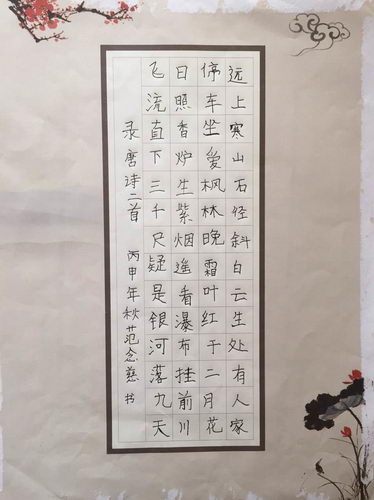 远上寒山石径斜白云生处有人家
停车坐爱枫林晚霜叶红于二月花
日照香炉生紫烟遥看瀑布挂前川
飞流直下三千尺疑是银河落九天
录唐诗二首 丙申年秋范念慈书